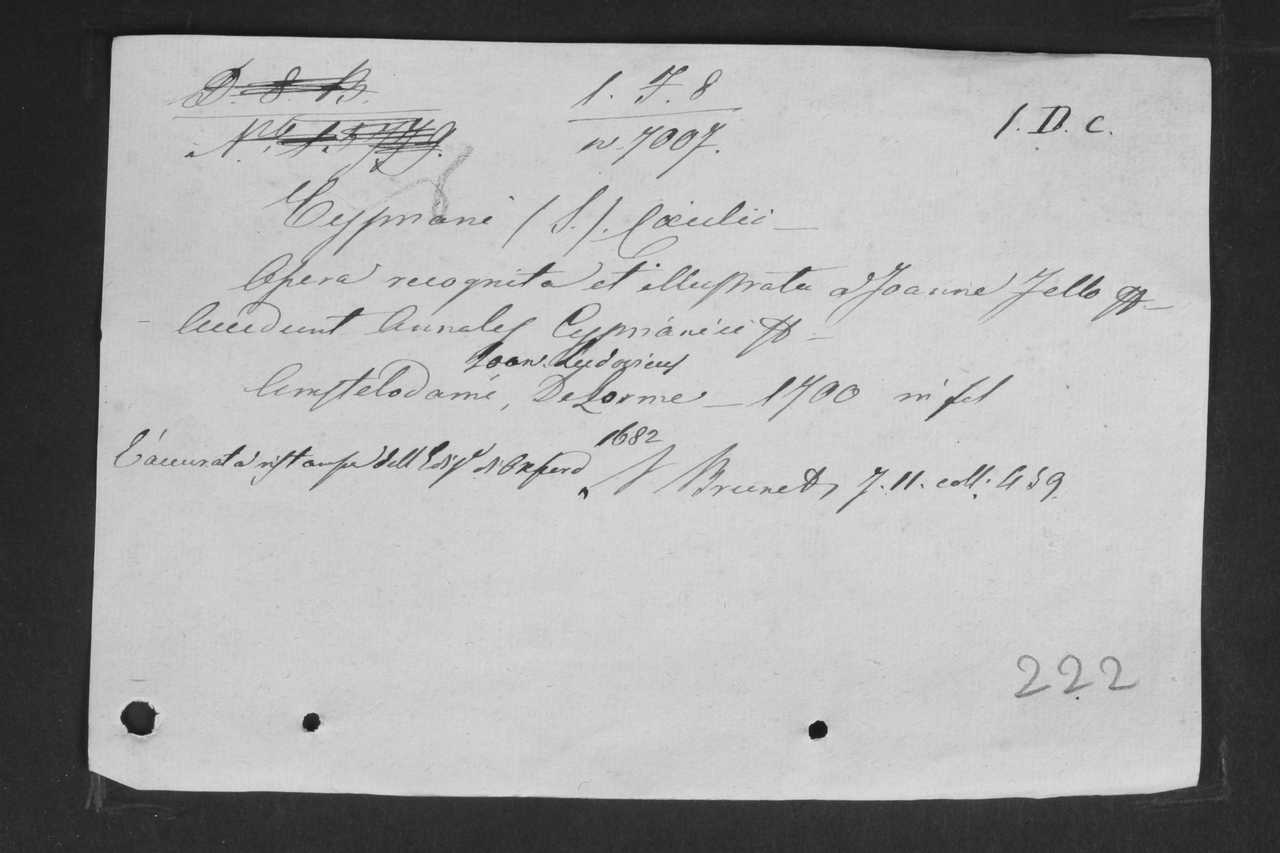 D. 8. B.
N.º 1.5779.
1. F. 8
n. 7007.
1. D. c.
Cypriani (S.). Cæcilii —
Opera recognita et illustrata a Joanne Fello
Accedunt Annales Cyprianici
Joan. Ludovicus
Amstelodami, De Lorme — 1700 in fol
1682
È accurata ristampa dell' Ediz.e di Oxford
V Brunet, T. II. coll. 459.
222